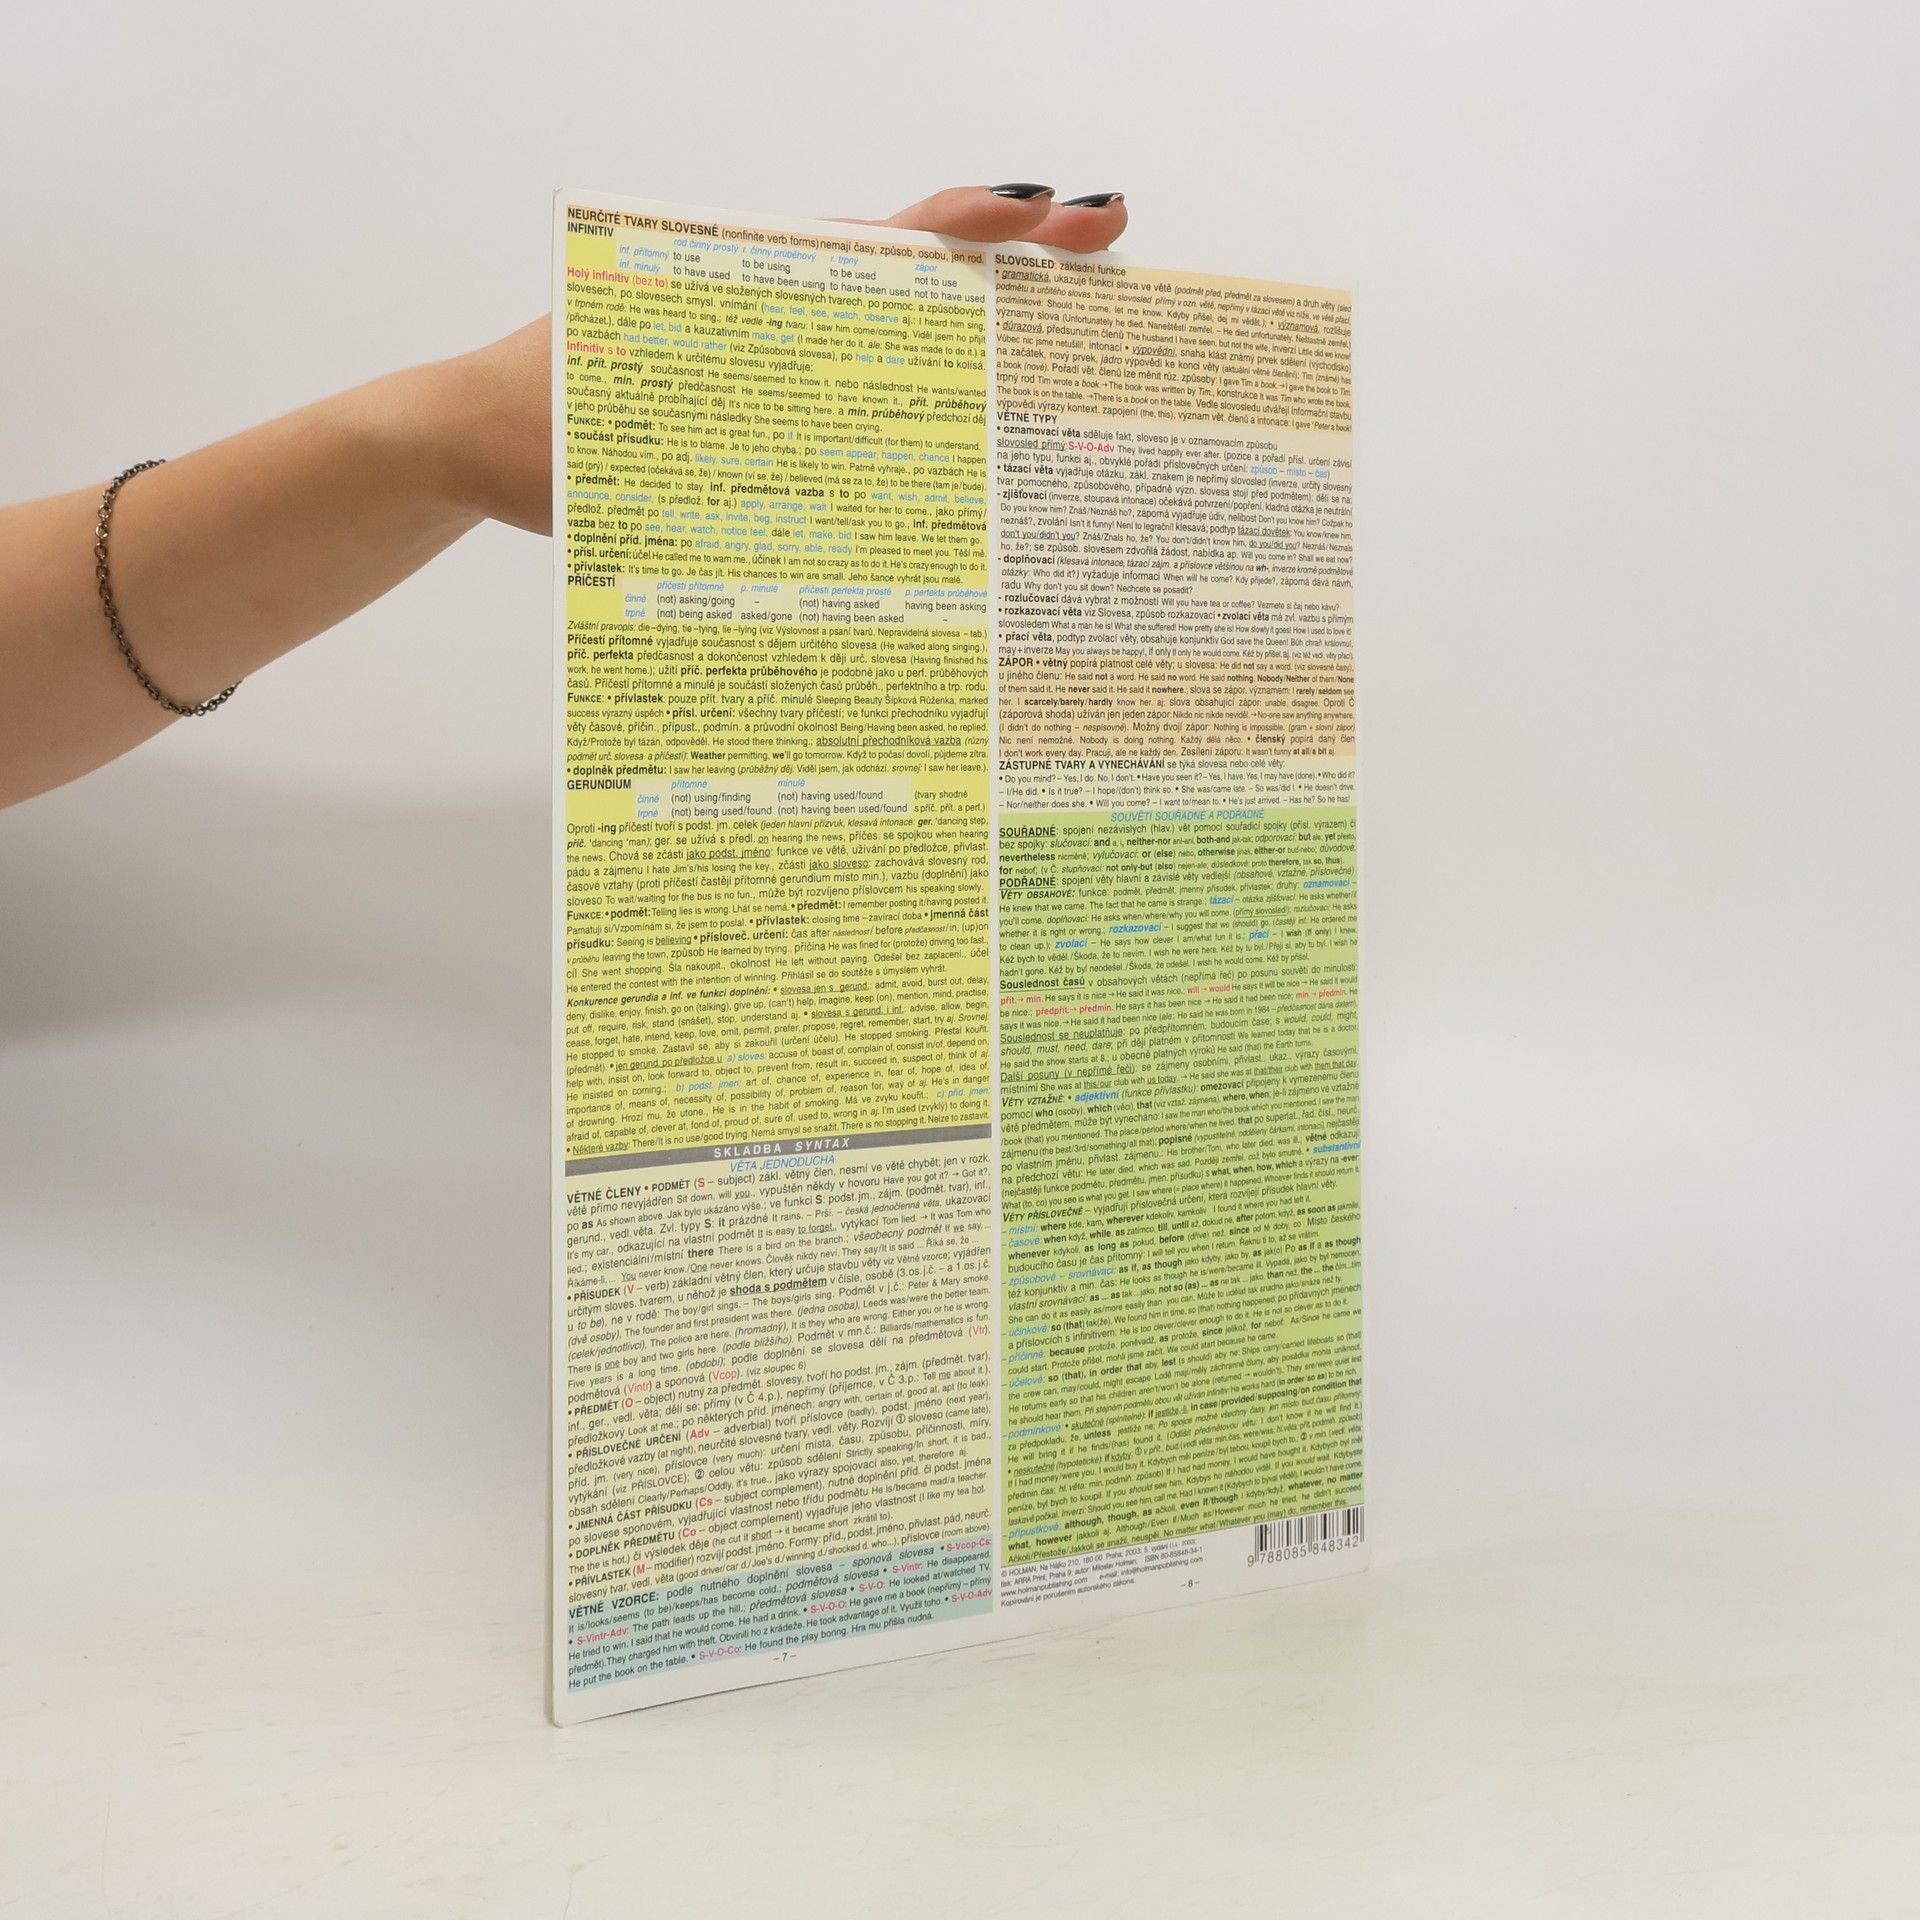 NEURČITÉ TVARY SLOVESNÉ (nonfinite verb forms) nemají časy, způsob, osobu, jen rod.
INFINITIV
rod činný prostý r. činný průběhový r. trpný zápor
inf. přítomný to use to be using to be used not to use
inf. minulý to have used to have been using to have been used not to have used
Holý infinitiv (bez to) se užívá ve složených slovesných tvarech, po pomoc. a způsobových
slovesech, po slovesech smysl. vnímání (hear, feel, see, watch, observe aj.: I heard him sing,
v trpném rodě: He was heard to sing.; též vedle -ing tvaru: I saw him come/coming. Viděl jsem ho přijít
/přicházet.), dále po let, bid a kauzativním make, get (I made her do it. ale: She was made to do it.) a
po vazbách had better, would rather (viz Způsobová slovesa), po help a dare užívání to kolísá.
Infinitiv s to vzhledem k určitému slovesu vyjadřuje:
inf. přít. prostý současnost He seems/seemed to know it. nebo následnost He wants/wanted
to come., min. prostý předčasnost He seems/seemed to have known it., přít. průběhový
současný aktuálně probíhající děj It's nice to be sitting here. a min. průběhový předchozí děj
v jeho průběhu se současnými následky She seems to have been crying.
FUNKCE: • podmět: To see him act is great fun., po it It is important/difficult (for them) to understand.
• součást přísudku: He is to blame. Je to jeho chyba.; po seem appear, happen, chance I happen
to know. Náhodou vím., po adj. likely, sure, certain He is likely to win. Patrně vyhraje., po vazbách He is
said (prý) / expected (očekává se, že) / known (ví se, že) / believed (má se za to, že) to be there (tam je/bude).
• předmět: He decided to stay. inf. předmětová vazba s to po want, wish, admit, believe,
announce, consider, (s předlož. for aj.) apply, arrange, wait I waited for her to come., jako přímý/
předlož. předmět po tell, write, ask, invite, beg, instruct I want/tell/ask you to go., inf. předmětová
vazba bez to po see, hear, watch, notice feel, dále let, make, bid I saw him leave. We let them go.
• doplnění příd. jména: po afraid, angry, glad, sorry, able, ready I'm pleased to meet you. Těší mě.
• přísl. určení: účel He called me to warn me., účinek I am not so crazy as to do it. He's crazy enough to do it.
• přívlastek: It's time to go. Je čas jít. His chances to win are small. Jeho šance vyhrát jsou malé.
PŘÍČESTÍ
příčestí přítomné p. minulé příčestí perfekta prosté p. perfekta průběhové
činné (not) asking/going – (not) having asked having been asking
trpné (not) being asked asked/gone (not) having been asked –
Zvláštní pravopis: die –dying, tie –tying, lie –lying (viz Výslovnost a psaní tvarů, Nepravidelná slovesa – tab.)
Příčestí přítomné vyjadřuje současnost s dějem určitého slovesa (He walked along singing.),
příč. perfekta předčasnost a dokončenost vzhledem k ději urč. slovesa (Having finished his
work, he went home.); užití příč. perfekta průběhového je podobné jako u perf. průběhových
časů. Příčestí přítomné a minulé je součástí složených časů průběh., perfektního a trp. rodu.
FUNKCE: • přívlastek: pouze přít. tvary a příč. minulé Sleeping Beauty Šípková Růženka, marked
success výrazný úspěch • přísl. určení: všechny tvary příčestí; ve funkci přechodníku vyjadřují
věty časové, příčin., přípust., podmín. a průvodní okolnost Being/Having been asked, he replied.
Když/Protože byl tázán, odpověděl. He stood there thinking.; absolutní přechodníková vazba (různý
podmět urč. slovesa a příčestí): Weather permitting, we'll go tomorrow. Když to počasí dovolí, půjdeme zítra.
• doplněk předmětu: I saw her leaving (průběžný děj: Viděl jsem, jak odchází. srovnej: I saw her leave.).
GERUNDIUM
přítomné minulé
činné (not) using/finding (not) having used/found (tvary shodné
trpné (not) being used/found (not) having been used/found s příč. přít. a perf.)
Oproti -ing příčestí tvoří s podst. jm. celek (jeden hlavní přízvuk, klesavá intonace: ger. 'dancing step,
příč. 'dancing 'man); ger. se užívá s předl. on hearing the news, příčes. se spojkou when hearing
the news. Chová se zčásti jako podst. jméno: funkce ve větě, užívání po předložce, přivlast.
pádu a zájmenu I hate Jim's/his losing the key., zčásti jako sloveso: zachovává slovesný rod,
časové vztahy (proti příčestí častěji přítomné gerundium místo min.), vazbu (doplnění) jako
sloveso To wait/waiting for the bus is no fun., může být rozvíjeno příslovcem his speaking slowly.
FUNKCE: • podmět: Telling lies is wrong. Lhát se nemá. • předmět: I remember posting it/having posted it.
Pamatuji si/Vzpomínám si, že jsem to poslal. • přívlastek: closing time – zavírací doba • jmenná část
přísudku: Seeing is believing • přísloveč. určení: čas after následnost / before předčasnost / in, (up)on
v průběhu leaving the town, způsob He learned by trying., příčina He was fined for (protože) driving too fast.,
cíl She went shopping. Šla nakoupit., okolnost He left without paying. Odešel bez zaplacení., účel
He entered the contest with the intention of winning. Přihlásil se do soutěže s úmyslem vyhrát.
Konkurence gerundia a inf. ve funkci doplnění: • slovesa jen s gerund.: admit, avoid, burst out, delay,
deny, dislike, enjoy, finish, go on (talking), give up, (can't) help, imagine, keep (on), mention, mind, practise,
put off, require, risk; stand (snášet), stop, understand aj. • slovesa s gerund. i inf.: advise, allow, begin,
cease, forget, hate, intend, keep, love, omit, permit, prefer, propose, regret, remember, start, try aj. Srovnej:
He stopped to smoke. Zastavil se, aby si zakouřil (určení účelu). He stopped smoking. Přestal kouřit.
(předmět). • jen gerund. po předložce u a) sloves: accuse of, boast of, complain of, consist in/of, depend on,
help with, insist on, look forward to, object to, prevent from, result in, succeed in, suspect of, think of aj.
He insisted on coming.; b) podst. jmen: art of, chance of, experience in, fear of, hope of, idea of,
importance of, means of, necessity of, possibility of, problem of, reason for, way of aj. He's in danger
of drowning. Hrozí mu, že utone., He is in the habit of smoking. Má ve zvyku kouřit.; c) příd. jmen:
afraid of, capable of, clever at, fond of, proud of, sure of, used to, wrong in aj. I'm used (zvyklý) to doing it.
• Některé vazby: There/It is no use/good trying. Nemá smysl se snažit. There is no stopping it. Nelze to zastavit.
SKLADBA SYNTAX
VĚTA JEDNODUCHÁ
VĚTNÉ ČLENY • PODMĚT (S – subject) zákl. větný člen, nesmí ve větě chybět; jen v rozk.
větě přímo nevyjádřen Sit down, will you., vypuštěn někdy v hovoru Have you got it? → Got it?,
po as As shown above. Jak bylo ukázáno výše.; ve funkci S: podst. jm., zájm. (podmět. tvar), inf.,
gerund., vedl. věta. Zvl. typy S: it prázdné It rains. – Prší. – česká jednočlenná věta, ukazovací
It's my car., odkazující na vlastní podmět It is easy to forget., vytýkací Tom lied. → It was Tom who
lied.; existenciální/místní there There is a bird on the branch.; všeobecný podmět If we say, ...
Říkáme-li, ... You never know./One never knows. Člověk nikdy neví. They say/It is said ... Říká se, že ...
• PŘÍSUDEK (V – verb) základní větný člen, který určuje stavbu věty viz Větné vzorce; vyjádřen
určitým sloves. tvarem, u něhož je shoda s podmětem v čísle, osobě (3. os. j.č. – a 1. os. j.č.
u to be), ne v rodě: The boy/girl sings. – The boys/girls sing. Podmět v j.č.: Peter & Mary smoke.
(dvě osoby), The founder and first president was there. (jedna osoba), Leeds was/were the better team.
(celek/jednotlivci), The police are here. (hromadný), It is they who are wrong. Either you or he is wrong.
There is one boy and two girls here. (podle bližšího). Podmět v mn.č.: Billiards/mathematics is fun.
Five years is a long time. (období); podle doplnění se slovesa dělí na předmětová (Vtr),
podmětová (Vintr) a sponová (Vcop). (viz sloupec 6)
• PŘEDMĚT (O – object) nutný za předmět. slovesy, tvoří ho podst. jm., zájm. (předmět. tvar),
inf., ger., vedl. věta; dělí se: přímý (v Č 4.p.), nepřímý (příjemce, v Č 3.p.: Tell me about it.),
předložkový Look at me.; po některých příd. jménech: angry with, certain of, good at, apt (to leak).
• PŘÍSLOVEČNÉ URČENÍ (Adv – adverbial) tvoří příslovce (badly), podst. jméno (next year),
předložkové vazby (at night), neurčité slovesné tvary, vedl. věty. Rozvíjí ① sloveso (came late),
příd. jm. (very nice), příslovce (very much): určení místa, času, způsobu, příčinnosti, míry,
vytýkání (viz PŘÍSLOVCE); ② celou větu: způsob sdělení Strictly speaking/In short, it is bad.,
obsah sdělení Clearly/Perhaps/Oddly, it's true., jako výrazy spojovací also, yet, therefore aj.
• JMENNÁ ČÁST PŘÍSUDKU (Cs – subject complement), nutné doplnění příd. či podst. jména
po slovese sponovém, vyjadřující vlastnost nebo třídu podmětu He is/became mad/a teacher.
• DOPLNĚK PŘEDMĚTU (Co – object complement) vyjadřuje jeho vlastnost (I like my tea hot.
The the is hot.) či výsledek děje (he cut it short → it became short zkrátil to).
• PŘÍVLASTEK (M – modifier) rozvíjí podst. jméno. Formy: příd., podst. jméno, přivlast. pád, neurč.
slovesný tvar, vedl. věta (good driver/car d./Joe's d./winning d./shocked d. who...), příslovce (room above).
VĚTNÉ VZORCE: podle nutného doplnění slovesa – sponová slovesa • S-Vcop-Cs:
It is/looks/seems (to be)/keeps/has become cold.; podmětová slovesa • S-Vintr: He disappeared.
• S-Vintr-Adv: The path leads up the hill.; předmětová slovesa • S-V-O: He looked at/watched TV.
He tried to win. I said that he would come. He had a drink. • S-V-O-O: He gave me a book (nepřímý – přímý
předmět). They charged him with theft. Obvinili ho z krádeže. He took advantage of it. Využil toho. • S-V-O-Adv
He put the book on the table. • S-V-O-Co: He found the play boring. Hra mu přišla nudná.
– 7 –
SLOVOSLED: základní funkce
• gramatická, ukazuje funkci slova ve větě (podmět před, předmět za slovesem) a druh věty (sled
podmětu a určitého sloves. tvaru: slovosled přímý v ozn. větě, nepřímý v tázací větě viz níže, ve větě přací,
podmínkové: Should he come, let me know. Kdyby přišel, dej mi vědět.); • významová, rozlišuje
významy slova (Unfortunately he died. Naneštěstí zemřel. – He died unfortunately. Nešťastně zemřel.)
• důrazová, předsunutím členů The husband I have seen, but not the wife, inverzí Little did we know!
Vůbec nic jsme netušili!, intonací • výpovědní, snaha klást známý prvek sdělení (východisko)
na začátek, nový prvek, jádro výpovědi ke konci věty (aktuální větné členění): Tim (známé) has
a book (nové). Pořadí vět. členů lze měnit růz. způsoby: I gave Tim a book. → I gave the book to Tim.
trpný rod Tim wrote a book. → The book was written by Tim., konstrukce It was Tim who wrote the book.
The book is on the table. → There is a book on the table. Vedle slovosledu utvářejí informační stavbu
výpovědi výrazy kontext. zapojení (the, this), význam vět. členů a intonace: I gave 'Peter a book!
VĚTNÉ TYPY
• oznamovací věta sděluje fakt, sloveso je v oznamovacím způsobu
slovosled přímý: S-V-O-Adv They lived happily ever after. (pozice a pořadí přísl. určení závisí
na jeho typu, funkci aj., obvyklé pořadí příslovečných určení: způsob – místo – čas)
• tázací věta vyjadřuje otázku, zákl. znakem je nepřímý slovosled (inverze, určitý slovesný
tvar pomocného, způsobového, případně význ. slovesa stojí před podmětem); dělí se na:
- zjišťovací (inverze, stoupavá intonace) očekává potvrzení/popření, kladná otázka je neutrální
Do you know him? Znáš/Neznáš ho?, záporná vyjadřuje údiv, nelibost Don't you know him? Cožpak ho
neznáš?, zvolání Isn't it funny! Není to legrační! klesavá; podtyp tázací dovětek: You know/knew him,
don't you/didn't you? Znáš/Znals ho, že? You don't/didn't know him, do you/did you? Neznáš/Neznals
ho, že?; se způsob. slovesem zdvořilá žádost, nabídka ap. Will you come in? Shall we eat now?
- doplňovací (klesavá intonace, tázací zájm. a příslovce většinou na wh-, inverze kromě podmětové
otázky: Who did it?) vyžaduje informaci When will he come? Kdy přijde?, záporná dává návrh,
radu Why don't you sit down? Nechcete se posadit?
- rozlučovací dává vybrat z možností Will you have tea or coffee? Vezmete si čaj nebo kávu?
• rozkazovací věta viz Slovesa, způsob rozkazovací • zvolací věta má zvl. vazbu s přímým
slovosledem What a man he is! What she suffered! How pretty she is! How slowly it goes! How I used to love it!
• přací věta, podtyp zvolací věty, obsahuje konjunktiv God save the Queen! Bůh chraň královnu!,
may + inverze May you always be happy!, if only If only he would come. Kéž by přišel. aj. (viz též vedl. věty přací).
ZÁPOR • větný popírá platnost celé věty; u slovesa: He did not say a word. (viz slovesné časy),
u jiného členu: He said not a word. He said no word. He said nothing. Nobody/Neither of them/None
of them said it. He never said it. He said it nowhere.; slova se zápor. významem: I rarely/seldom see
her. I scarcely/barely/hardly know her. aj; slova obsahující zápor: unable, disagree. Oproti Č
(záporová shoda) užíván jen jeden zápor: Nikdo nic nikde neviděl. → No-one saw anything anywhere.
(I didn't do nothing – nespisovné). Možný dvojí zápor: Nothing is impossible. (gram + slovní zápor)
Nic není nemožné. Nobody is doing nothing. Každý dělá něco. • členský popírá daný člen
I don't work every day. Pracuji, ale ne každý den. Zesílení záporu: It wasn't funny at all/a bit aj.
ZÁSTUPNÉ TVARY A VYNECHÁVÁNÍ se týká slovesa nebo celé věty:
• Do you mind? – Yes, I do. No, I don't. • Have you seen it? – Yes, I have. Yes, I may have (done). • Who did it?
– I/He did. • Is it true? – I hope/(don't) think so. • She was/came late. – So was/did I. • He doesn't drive.
– Nor/neither does she. • Will you come? – I want to/mean to. • He's just arrived. – Has he? So he has!
SOUVĚTÍ SOUŘADNÉ A PODŘADNÉ
SOUŘADNÉ: spojení nezávislých (hlav.) vět pomocí souřadicí spojky (přísl. výrazem) či
bez spojky: slučovací: and a, i, neither-nor ani-ani, both-and jak-tak; odporovací: but ale, yet přesto,
nevertheless nicméně; vylučovací: or (else) nebo, otherwise jinak, either-or buď-nebo; důvodové:
for neboť; (v Č: stupňovací: not only-but (also) nejen-ale, důsledkové: proto therefore, tak so, thus).
PODŘADNÉ: spojení věty hlavní a závislé věty vedlejší (obsahové, vztažné, příslovečné)
VĚTY OBSAHOVÉ: funkce: podmět, předmět, jmenný přísudek, přívlastek; druhy: oznamovací –
He knew that we came. The fact that he came is strange.; tázací – otázka zjišťovací: He asks whether/if
you'll come. doplňovací: He asks when/where/why you will come. (přímý slovosled!); rozlučovací: He asks
whether it is right or wrong.; rozkazovací – I suggest that we (should) go. (častěji inf. He ordered me
to clean up.); zvolací – He says how clever I am/what fun it is.; přací – I wish (If only) I knew.
Kéž bych to věděl./Škoda, že to nevím. I wish he were here. Kéž by tu byl./Přeji si, aby tu byl. I wish he
hadn't gone. Kéž by byl neodešel./Škoda, že odešel. I wish he would come. Kéž by přišel.
Souslednost časů v obsahových větách (nepřímá řeč) po posunu souvětí do minulosti:
přít. → min. He says it is nice → He said it was nice.; will → would He says it will be nice → He said it would
be nice.; předpřít. → předmin. He says it has been nice → He said it had been nice; min. → předmin. He
says it was nice. → He said it had been nice (ale: He said he was born in 1984 – předčasnost dána datem).
Souslednost se neuplatňuje: po předpřítomném, budoucím čase; s would, could, might,
should, must, need, dare; při ději platném v přítomnosti We learned today that he is a doctor.
He said the show starts at 8.; u obecně platných výroků He said (that) the Earth turns.
Další posuny (v nepřímé řeči): se zájmeny osobními, přivlast., ukaz., výrazy časovými,
místními She was at this/our club with us today. → He said she was at that/their club with them that day.
VĚTY VZTAŽNÉ: • adjektivní (funkce přívlastku): omezovací připojeny k vymezenému členu
pomocí who (osoby), which (věci), that (viz vztaž. zájmena), where, when; je-li zájmeno ve vztažné
větě předmětem, může být vynecháno: I saw the man who/the book which you mentioned. I saw the man
/book (that) you mentioned. The place/period where/when he lived, that po superlat., řad. čísl., neurč.
zájmenu (the best/3rd/something/all that); popisné (vypustitelné, odděleny čárkami, intonací), nejčastěji
po vlastním jménu, přivlast. zájmenu.: His brother/Tom, who later died, was ill.; větné odkazují
na předchozí větu: He later died, which was sad. Později zemřel, což bylo smutné. • substantivní
(nejčastěji funkce podmětu, předmětu, jmen. přísudku) s what, when, how, which a výrazy na -ever:
What (to, co) you see is what you get. I saw where (= place where) it happened. Whoever finds it should return it.
VĚTY PŘÍSLOVEČNÉ – vyjadřují příslovečná určení, která rozvíjejí přísudek hlavní věty.
– místní: where kde, kam, wherever kdekoliv, kamkoliv I found it where you had left it.
– časové: when když, while, as zatímco, till, until až, dokud ne, after potom, když, as soon as jakmile,
whenever kdykoli, as long as pokud, before (dříve) než, since od té doby, co Místo českého
budoucího času je čas přítomný: I will tell you when I return. Řeknu ti to, až se vrátím.
– způsobové – srovnávací: as if, as though jako kdyby, jako by, as jak(o) Po as if a as though
též konjunktiv a min. čas: He looks as though he is/were/became ill. Vypadá, jako by byl nemocen;
vlastní srovnávací: as ... as tak ...jako, not so (as) ... as ne tak ... jako, than než, the ... the čím...tím
She can do it as easily as/more easily than you can. Může to udělat tak snadno jako/snáze než ty.
– účinkové: so (that) tak(že). We found him in time, so (that) nothing happened; po přídavných jménech
a příslovcích s infinitivem: He is too clever/clever enough to do it. He is not so clever as to do it.
– příčinné: because protože, poněvadž, as protože, since jelikož, for neboť. As/Since he came we
could start. Protože přišel, mohli jsme začít. We could start because he came.
– účelové: so (that), in order that aby, lest (s should) aby ne: Ships carry/carried lifeboats so (that)
the crew can, may/could, might escape. Lodě mají/měly záchranné čluny, aby posádka mohla uniknout.
He returns early so that his children aren't/won't be alone (returned → wouldn't). They are/were quiet lest
he should hear them. Při stejném podmětu obou vět užíván infinitiv: He works hard (in order/so as) to be rich.
– podmínkové: • skutečné (splnitelné): if jestliže, -li, in case/provided/supposing/on condition that
za předpokladu, že, unless jestliže ne; Po spojce možné všechny časy, jen místo bud. času přítomný:
He will bring it if he finds/(has) found it. (Odlišit předmětovou větu: I don't know if he will find it.)
• neskutečné (hypotetické): if kdyby. ① v přít., bud. (vedl. věta: min. čas, were/was; hl. věta: přít. podmiň. způsob)
If I had money/were you, I would buy it. Kdybych měl peníze/byl tebou, koupil bych to.; ② v min. (vedl. věta:
předmin. čas; hl. věta: min. podmiň. způsob) If I had had money, I would have bought it. Kdybych byl měl
peníze, byl bych to koupil. If you should see him. Kdybys ho náhodou viděl. If you would wait. Kdybyste
laskavě počkal. Inverzí: Should you see him, call me. Had I known it (Kdybych to býval věděl), I wouldn't have come.
– přípustkové: although, though, as ačkoli, even if/though i kdyby/když, whatever, no matter
what, however jakkoli aj. Although/Even if/Much as/However much he tried, he didn't succeed.
Ačkoli/Přestože/Jakkoli se snažil, neuspěl. No matter what/Whatever you (may) do, remember this.
© HOLMAN, Na Hájku 210, 180 00 Praha; 2003; 5. vydání (1.v. - 2000);
tisk: ARRA Print, Praha 9; autor: Miloslav Holman; ISBN 80-85848-34-1
www.holmanpublishing.com e-mail: info@holmanpublishing.com
Kopírování je porušením autorského zákona.
9 788085 848342
– 8 –